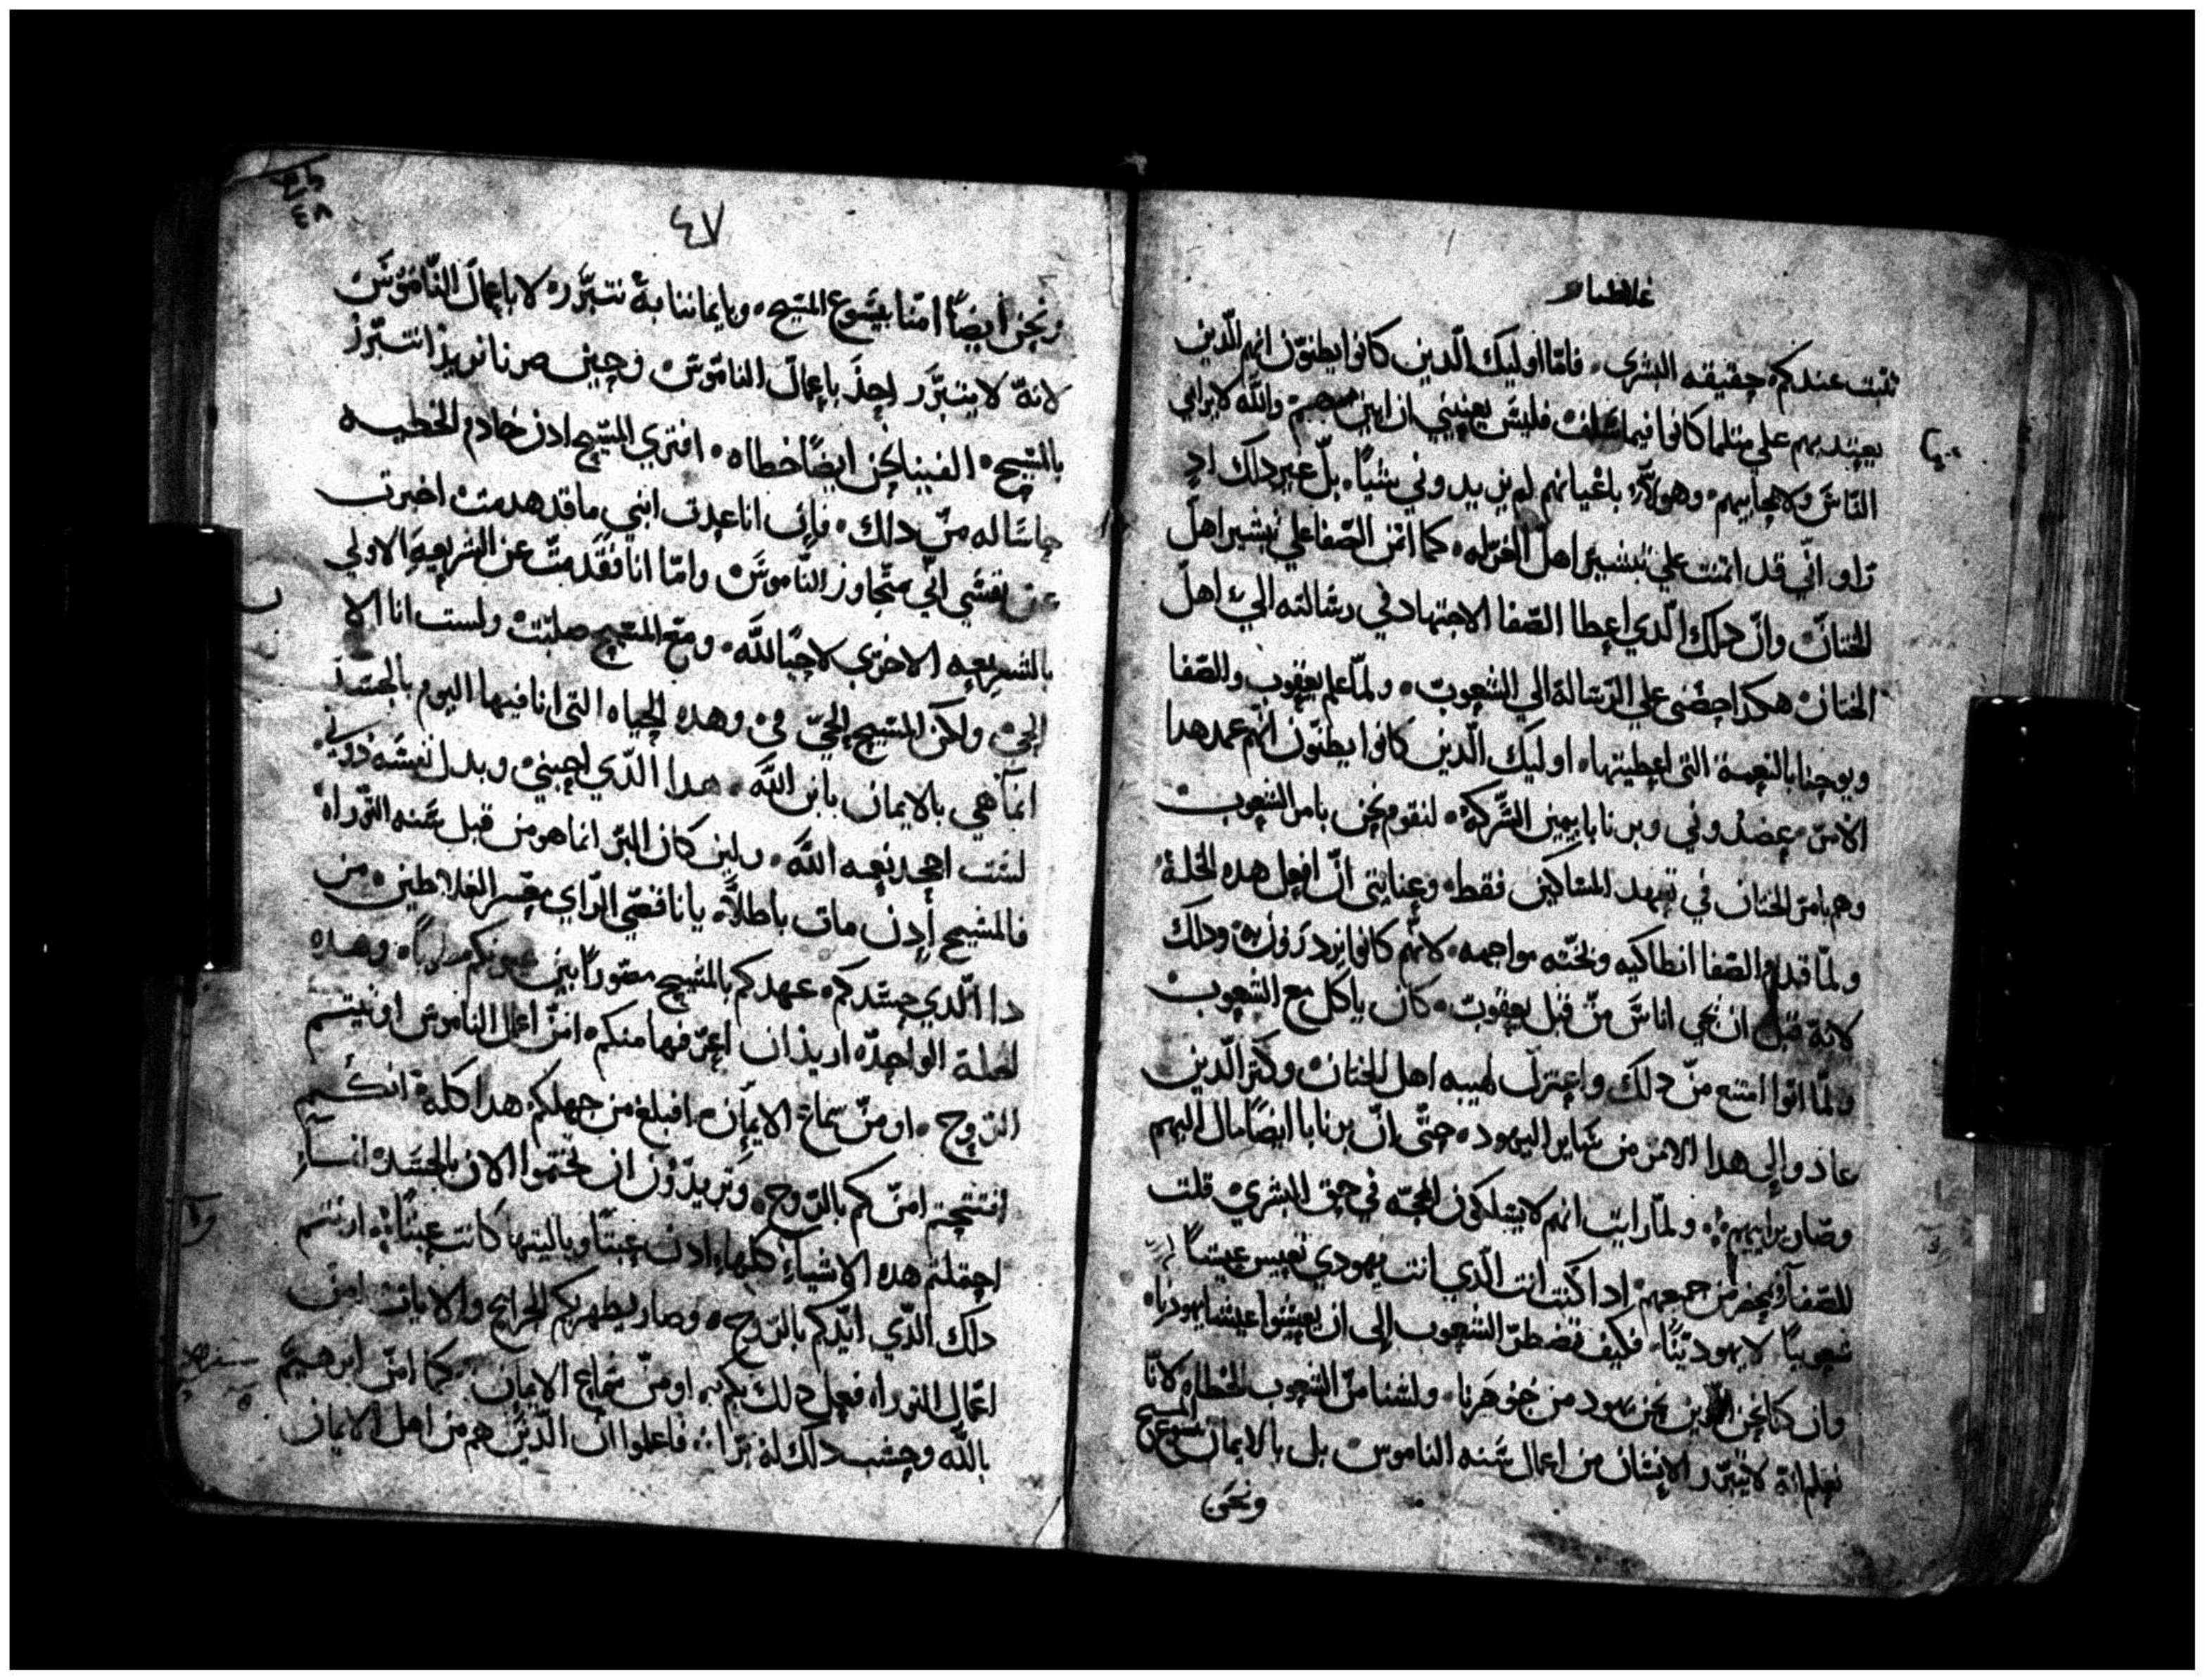 غلاطيا
تثبت عندكم حقيقه البشرى فامّا اوليك الّدين كانوا يظنوّن انهم الّدين
يعتد بهم على متلما كانوا فيما سلف فليسَ يعنيني ان ابين والله لا يرايي
النّاسَ ولا يحابيهم وهولاَء باعيانهم لم يزيدوني شيًا بلّ غير دلك اد
راو انّي قد ايتمنت علي تبشير اهل الغرله كما ايتمن الصّفا علي تبشير اهل
الختان وانّ دلك الّدي اعطا الصّفا الاجتهاد في رسالته الي اهل
الختان هكدا حضني علي الرّسالة الي الشعوب ولمّا علم يعقوب والصّفا
ويوحنا بالنعمة التي اعطيتها اوليك الّدين كانوا يظنّون انّهم عمد هدا
الامرّ عضدوني وبرنابا بيمين الشّركة لنقوم نحن بامر الشعوب
وهم بامر الختان في تعهد المساكين فقط وعنايتي انّ افعل هده الخلة
ولمّا قدم الصّفا انطاكيه وبّخته مواجهه لانّهم كانوا يزدرون به ودلك
لانة قبل ان يجي اناسَ منّ قبل يعقوب كان ياكل مع الشعوب
ولمّا اتوا امتنع منّ دلك واعتزل لهيبه اهل الختان وكثر الّدين
عادوا إلى هدا الامر من ساير اليهود حتّى انّ برنابا ايضًا مال اليهم
وصار يراييهم ولمّا رايت انهم لا يسلكون المحجّه في حق البشرى قلت
للصّفا بحضر من جمعهم ادا كنت انت الّدي انت يهودي تعيس عيشاً
شعوبياً لا يهوديّاً فكيف تضطرّ الشعوب إلى ان يعيشوا عيشا يهوديا
وان كنا نحن الّدين نحن يهود من جوهرنا ولسنا من الشعوب الخطاه لانّا
نعلم انّة لا يتبرّر الانسان من اعمال سَنه الناموس بل بالايمان بيسوع المسيح
ونحن
٤٧
٤٨
ونحن ايضاً امنّا بيسَوع المسَيح وبايماننا بهْ نتبرَّر لا باعمال النّاموسَ
لانهّ لا يتبرَّر احد باعمال الناموسَ وحين صرنا نريد ان نتبرّر
بالمسَيح الفينا نحن ايضاً خطاه افتري المسَيح ادن خادم الخطيه
حاسَا له منّ دلك فإن انا عدت ابني ما قد هدمت اخبرت
عن نفسَي انّي متجاوز النّاموسَ وامّا انا فقَد متّ عن الشريعه الاولي
بالشَريعه الاخرَي لاحيا للَّه ومع المسَيح صلبت ولست انا الا
الحي ولكن المسَيح الحيّ فيّ وهده الحياه التى انا فيها اليوم بالجسد
انمّا هي بالايمان بابن اللَّه هدا الّدي احبني وبدل نفسَه دوني
لست اجحد نعمه اللَّه ولين كان البرّ انما هو من قبل سَنه التّوراه
فالمسَيح إدن مات باطلاً يا ناقصَي الرّاي معسر الغلاطين من
دا الّدي حسَدكم عهدكم بالمسَيح مصَوراً بين عيونكم وهده
الخلة الواحده اريد ان اعرفها منكم امنّ اعمال الناموس اوتيتم
الرّوح او منّ سماع الايمان افبلغ من جهلكم هدا كلة انكم
افتتحتم امرّكم بالرّوح وتريدون ان تختموا الان بالجسَد
احتملتم هده الاشياء كلّها ادن عبتاً وياليتها كانت عبتاً ارئتم
دلك الّدي ايّدكم بالرّوح وصار يظهر بكم الجرايح والايات امن
اعمال التوراه فعل دلك بكم او منّ سَماع الايمان كما امن ابرهيم
باللَّه وحسَب دلك لهْ برّاً فاعلموا انّ الّدين هم من اهل الايمان